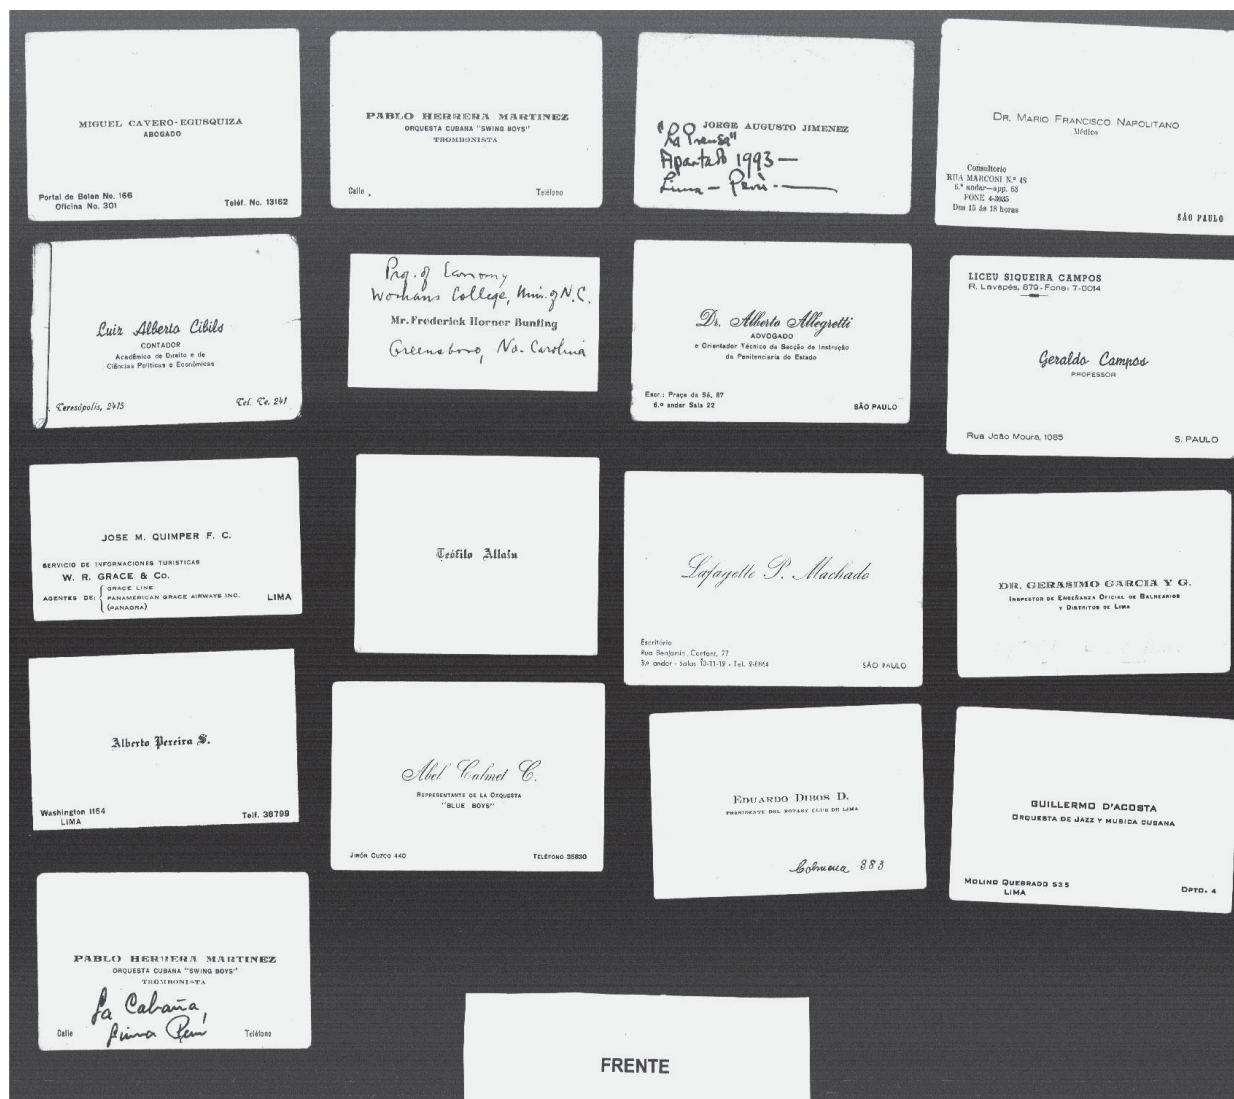 MIGUEL CAVERO-EGUSQUIZA
ABOGADO
Portal de Belen No. 166
Oficina No. 301
Teléf. No. 13162
PABLO HERRERA MARTINEZ
ORQUESTA CUBANA "SWING BOYS"
TROMBONISTA
Calle
Teléfono
JORGE AUGUSTO JIMENEZ
"La Prensa"
Apartado 1993 —
Lima - Perú -
DR. MARIO FRANCISCO NAPOLITANO
Médico
Consultorio
RUA MARCONI N.º 48
6.º andar—app. 63
FONE 4-3635
Das 15 ás 18 horas
SÃO PAULO
Luiz Alberto Cibils
CONTADOR
Acadêmico de Direito e de
Ciências Políticas e Econômicas
Teresópolis, 2415
Tel. Te. 241
Prof. of Economy
Womans College, Univ. of N.C.
Mr. Frederick Horner Bunting
Greensboro, No. Carolina
Dr. Alberto Allegretti
ADVOGADO
e Orientador Técnico da Secção de Instrução
da Penitenciaria do Estado
Escr.: Praça da Sé, 87
6.º andar Sala 22
SÃO PAULO
LICEU SIQUEIRA CAMPOS
R. Lavapés, 679 - Fone: 7-0014
Geraldo Campos
PROFESSOR
Rua João Moura, 1085
S. PAULO
JOSE M. QUIMPER F. C.
SERVICIO DE INFORMACIONES TURISTICAS
W. R. GRACE & Co.
AGENTES DE:
GRACE LINE
PANAMERICAN GRACE AIRWAYS INC.
(PANAGRA)
LIMA
Teófilo Allain
Lafayette P. Machado
Escritório
Rua Benjamin Contant, 77
3.º andar - Salas 10-11-12 - Tel. 2-6864
SÃO PAULO
DR. GERASIMO GARCIA Y G.
INSPECTOR DE ENSEÑANZA OFICIAL DE BALNEARIOS
Y DISTRITOS DE LIMA
Alberto Pereira S.
Washington 1154
LIMA
Telf. 38799
Abel Calmet C.
REPRESENTANTE DE LA ORQUESTA
"BLUE BOYS"
JIRÓN CUZCO 440
TELÉFONO 35830
EDUARDO DIBOS D.
PRESIDENTE DEL ROTARY CLUB DE LIMA
Colmena 383
GUILLERMO D'ACOSTA
ORQUESTA DE JAZZ Y MUSICA CUBANA
MOLINO QUEBRADO 535
LIMA
DPTO. 4
PABLO HERRERA MARTINEZ
ORQUESTA CUBANA "SWING BOYS"
TROMBONISTA
La Cabaña,
Lima Perú
Calle
Teléfono
FRENTE